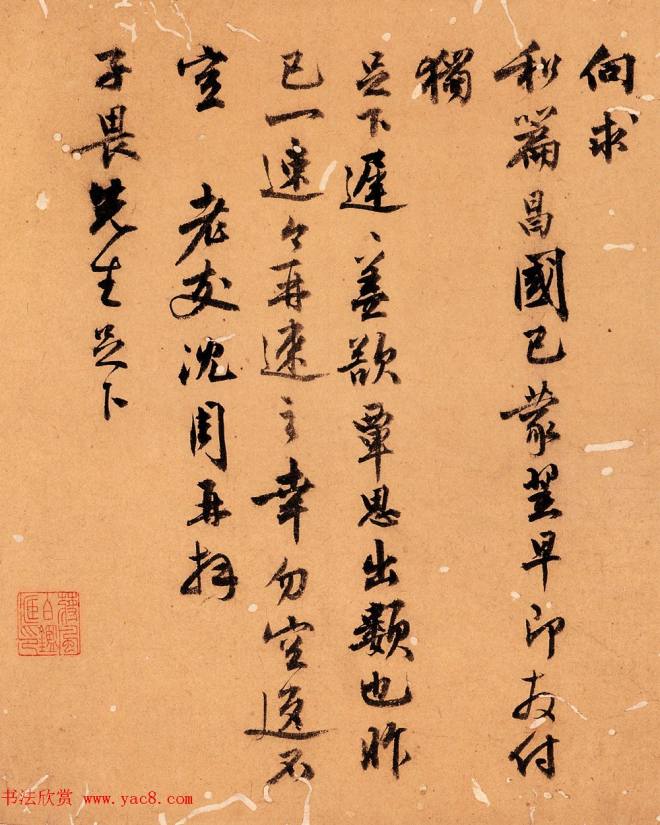 向求
和篇昌國已蒙翌早即交付
獨
足下遲々蓋欲覃思出類也昨
已一速々再速之幸勿空返不
宣 老友沈周再拜
子畏先生足下
书法欣赏 www.yac8.com